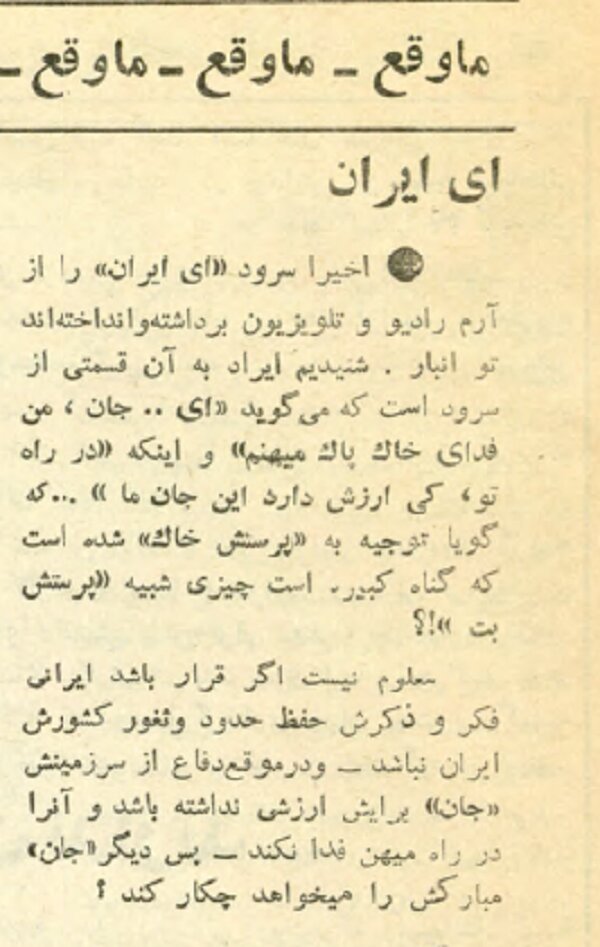 ماوقع ـ ماوقع ـ ماوقع ـ
ای ایران
● اخیرا سرود «ای ایران» را از
آرم رادیو و تلویزیون برداشته‌وانداخته‌اند
تو انبار . شنیدیم ایراد به آن قسمتی از
سرود است که می‌گوید «ای .. جان ، من
فدای خاك پاك میهنم» و اینکه «در راه
تو، کی ارزش دارد این جان ما » ...که
گویا توجیه به «پرستش خاك» شده است
که گناه کبیره است چیزی شبیه «پرستش
بت »!؟
معلوم نیست اگر قرار باشد ایرانی
فکر و ذکرش حفظ حدود وثغور کشورش
ایران نباشد ــ ودرموقع‌دفاع از سرزمینش
«جان» برایش ارزشی نداشته باشد و آنرا
در راه میهن فدا نکند ــ پس دیگر«جان»
مبارکش را میخواهد چکار کند ؟